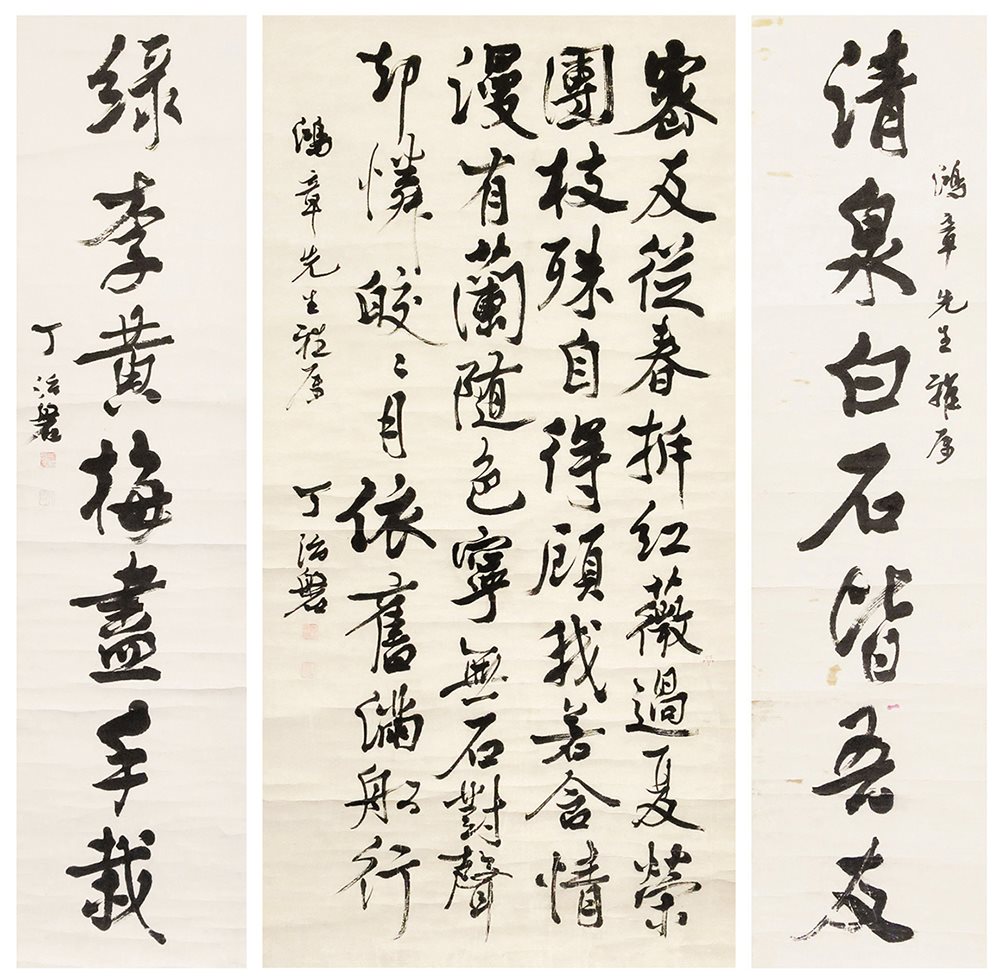 鴻章先生雅属
清泉白石皆吾友
密友從春拆紅薇過夏榮
團枝殊自得顧我若含情
漫有蘭随色寧無石對聲
却憐皎〻月依舊滿船行
鴻章先生雅属 丁治磐
綠李黃梅盡手栽
丁治磐